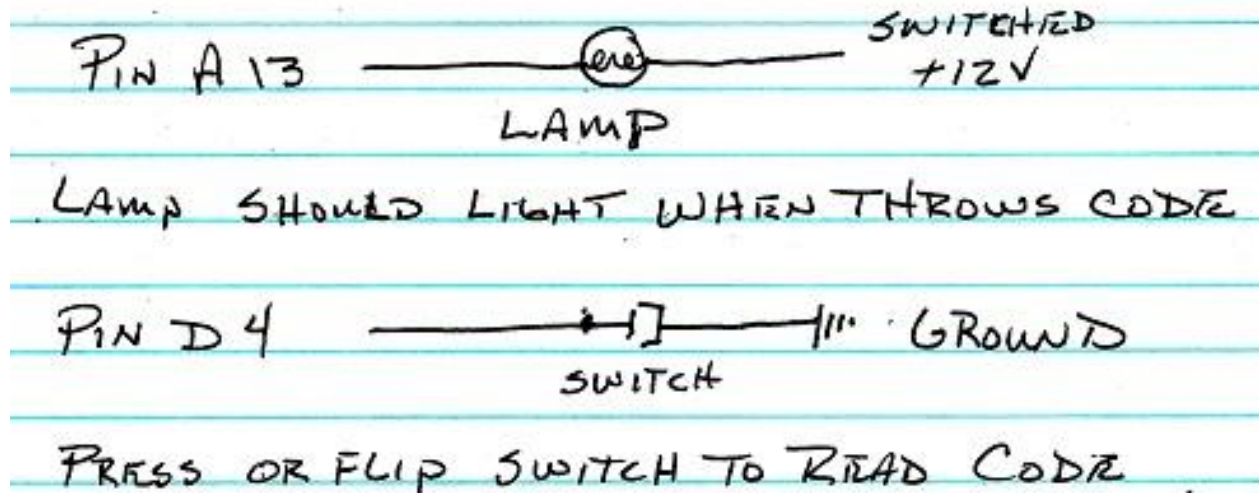 PIN A 13 SWITCHED
+12V
LAMP
LAMP SHOULD LIGHT WHEN THROWS CODE
PIN D 4 GROUND
SWITCH
PRESS OR FLIP SWITCH TO READ CODE